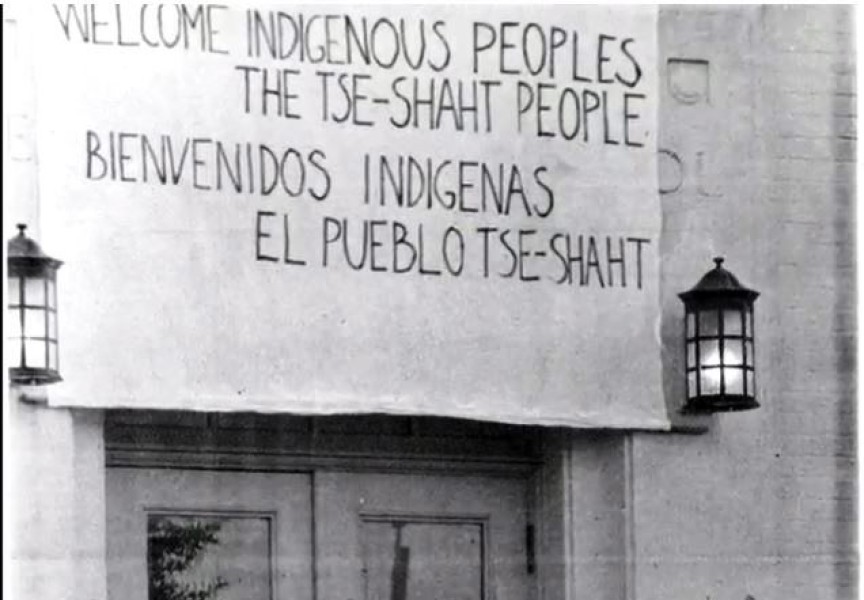 WELCOME INDIGENOUS PEOPLES
THE TSE-SHAHT PEOPLE.
BIENVENIDOS INDIGENAS
EL PUEBLO TSE-SHAHT